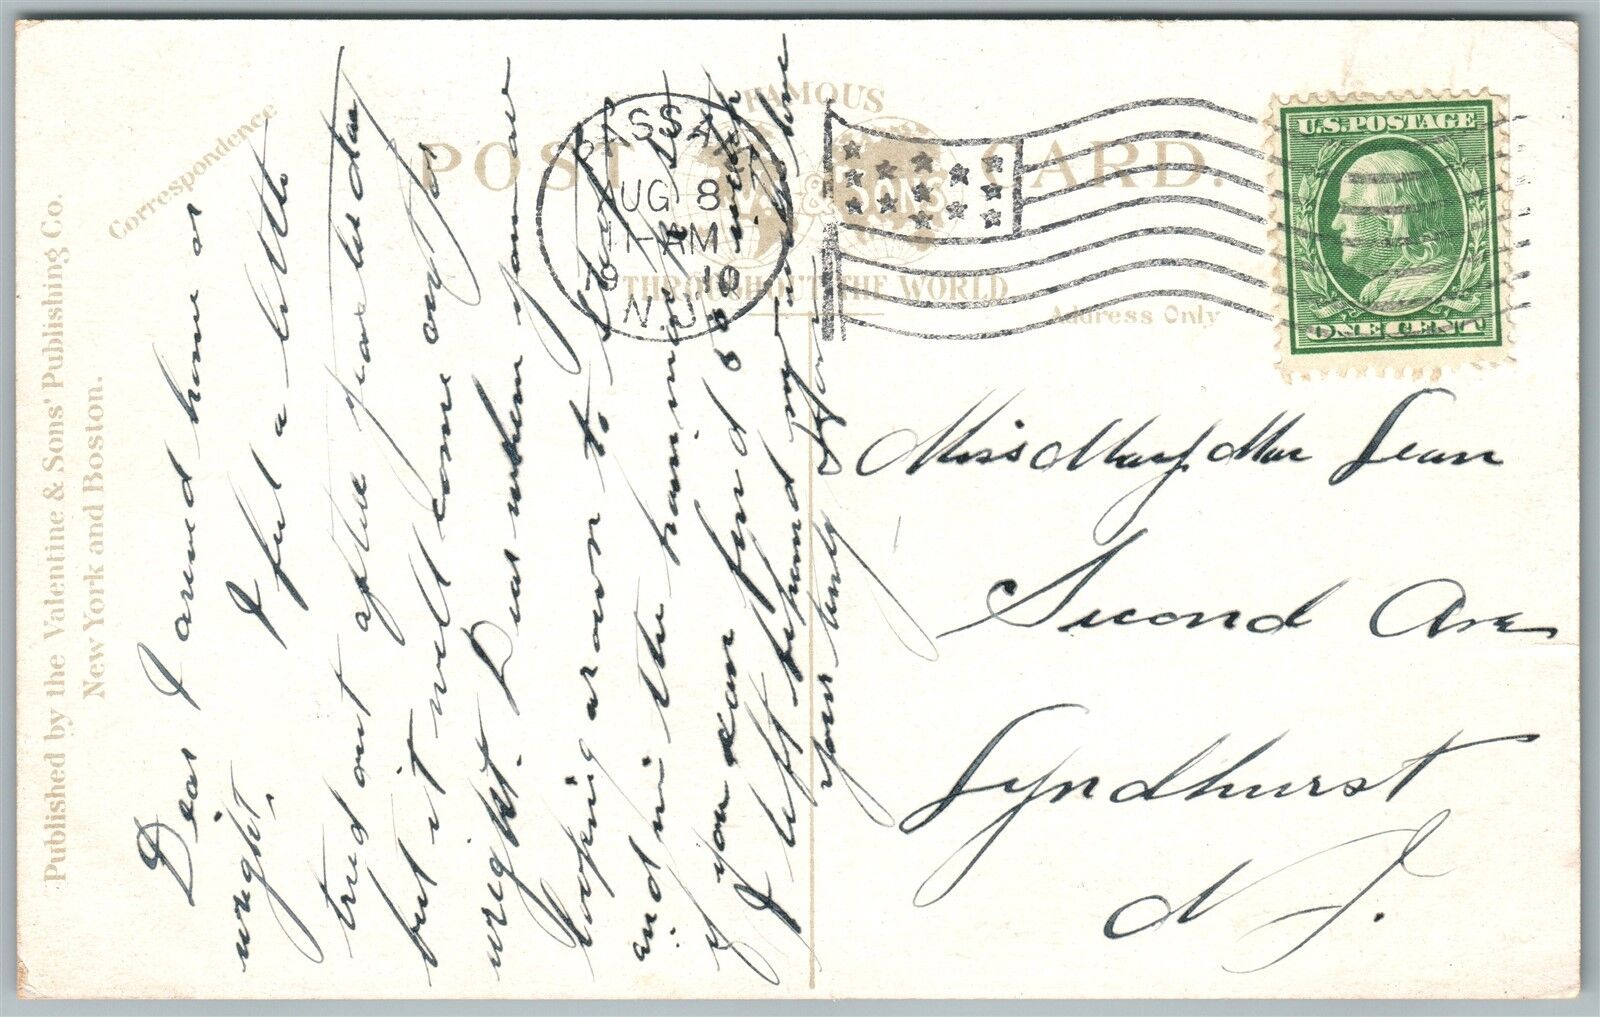 Published by the Valentine & Sons' Publishing Co.
New York and Boston.
Correspondence
FAMOUS
POST CARD.
& SONS
THROUGHOUT THE WORLD
Address Only
PASSAIC
AUG 8
11-AM
1910
N.J.
U.S. POSTAGE
ONE CENT
Dear I arived home as
wright.
I feel a little
tired out after
but it will come out as
wright. Dear when you are
looping aroun to
and in the
if you can find
I left behind my
yours truly
Miss Mary Mac Lean
Second Ave
Lyndhurst
N. J.